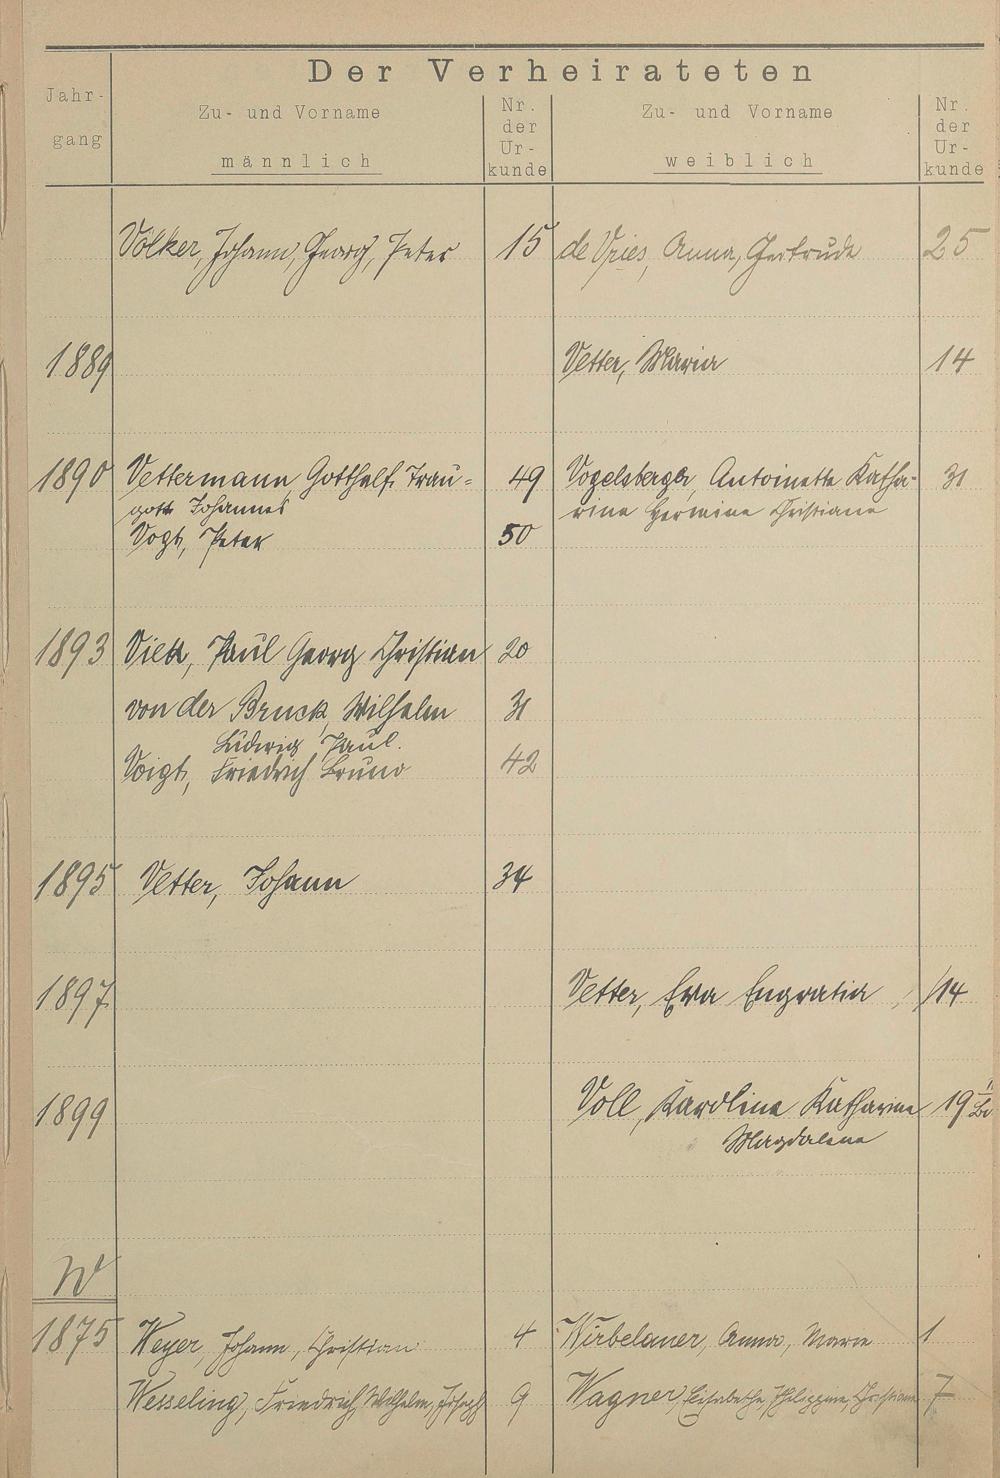 Der Verheirateten
Jahr-
gang
Zu- und Vorname
männlich
Nr.
der
Ur-
kunde
Zu- und Vorname
weiblich
Nr.
der
Ur-
kunde
Völker, Johann, Georg, Peter 15 de Vries, Anna, Gertrude 25
1889 Vetter, Maria 14
1890 Vettermann, Gotthelf Trau= 49 Vogelsberger, Antoinette Katha- 31
gott Johannes rine Hermine Christiane
Vogt, Peter 50
1893 Paul Georg Christian 20
von der Bruck, Wilhelm 31
Ludwig Paul.
Voigt, Friedrich Bruno 42
1895 Vetter, Johann 34
1897 Vetter, Eva Engratia 14
1899 Voll, Karoline Katharine 19
Magdalena
W
1875 Weyer, Johann, Christian 4 Wirbelauer, Anna, Marie 1
Wesseling, Friedrich, Wilhelm, Joseph 9 Wagner, Elisabethe, Philippine, Christiane 7